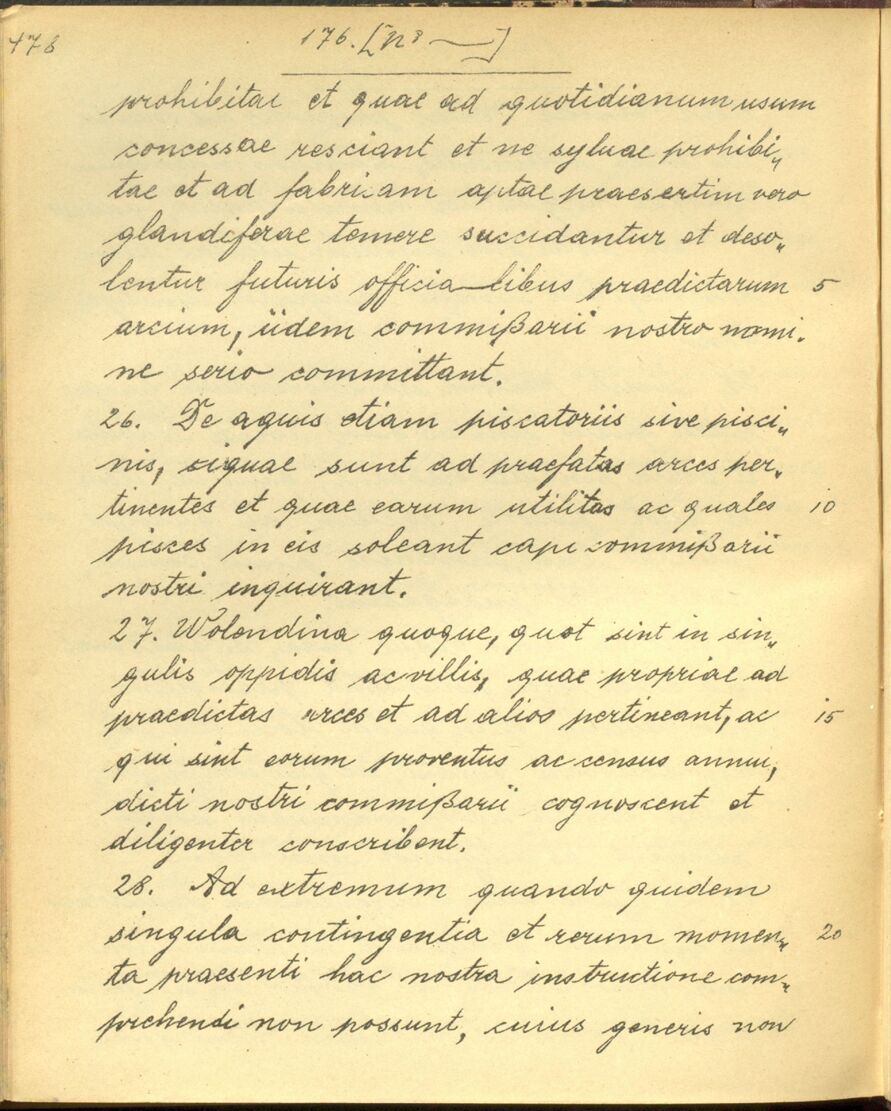 478
176. [N° —]
prohibitae et quae ad quotidianum usum
concessae resciant et ne syluae prohibi„
tae et ad fabricam aptae praesertim vero
glandiferae temere succidantur et deso„
lentur futuris officialibus praedictarum 5
arcium, iidem commißarii nostro nomi„
ne serio committant.
26. De aquis etiam piscatoriis sive pisci„
nis, siquae sunt ad praefatas arces per„
tinentes et quae earum utilitas ac quales 10
pisces in eis soleant capi commißarii
nostri inquirant.
27. Molendina quoque, quot sint in sin„
gulis oppidis ac villis, quae propriae ad
praedictas arces et ad alios pertineant, ac 15
qui sint eorum proventus ac census annui,
dicti nostri commißarii cognoscent et
diligenter conscribent.
28. Ad extremum quando quidem
singula contingentia et rerum momen„ 20
ta praesenti hac nostra instructione com„
prehendi non possunt, cuius generis non